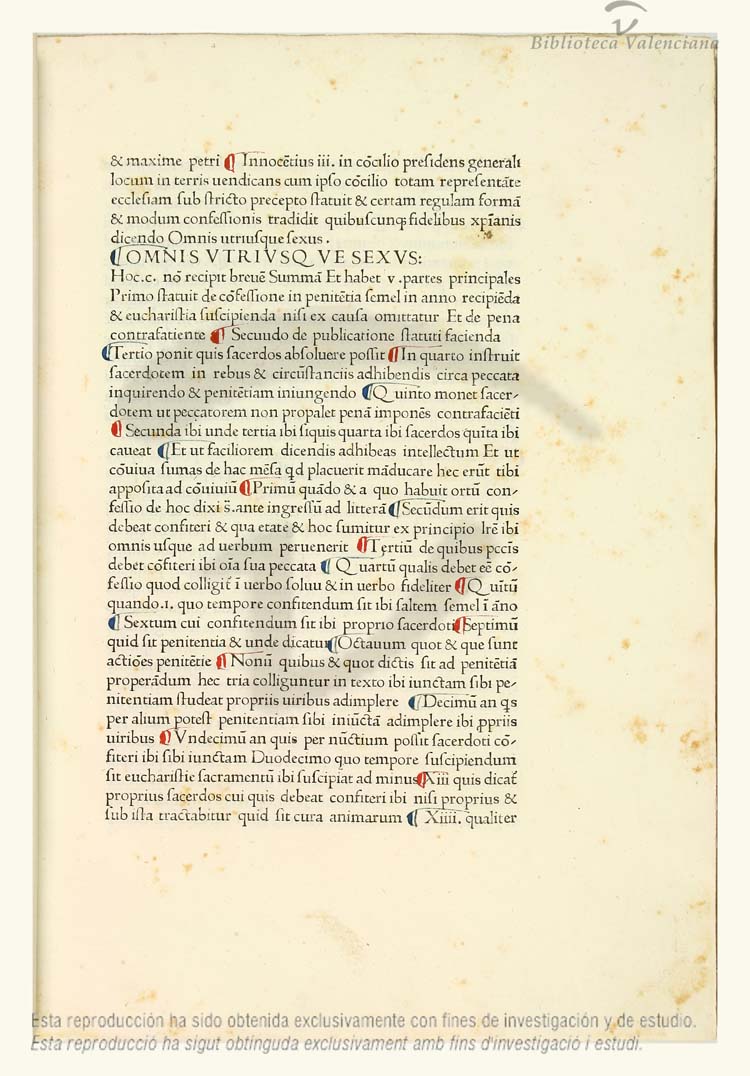 Biblioteca Valenciana
& maxime petri ¶ Innocẽtius iii. in cõcilio presidens generali
locum in terris uendicans cum ipso cõcilio totam represẽtate
ecclesiam sub stricto precepto statuit & certam regulam formã
& modum confessionis tradidit quibuscunqꝫ fidelibus xpĩanis
dicendo Omnis utriusque sexus .
¶ OMNIS VTRIVSQ VE SEXVS:
Hoc.c. nõ recipit breuẽ Summã Et habet v .partes principales
Primo statuit de cõfessione in penitẽtia semel in anno recipiẽda
& eucharistia suscipienda nisi ex causa omittatur Et de pena
contrafatiente ¶ Secuudo de publicatione statuti facienda
¶ Tertio ponit quis sacerdos absoluere possit ¶ In quarto instruit
sacerdotem in rebus & circũstanciis adhibendis circa peccata
inquirendo & penitẽtiam iniungendo ¶ Q uinto monet sacer-
dotem ut peccatorem non propalet penã imponẽs contrafaciẽti
¶ Secunda ibi unde tertia ibi siquis quarta ibi sacerdos quĩta ibi
caueat ¶ Et ut faciliorem dicendis adhibeas intellectum Et ut
cõuiua sumas de hac mẽsa qd placuerit mãducare hec erũt tibi
apposita ad cõuiuiũ ¶ Primũ quãdo & a quo habuit ortũ con-
fessio de hoc dixi s̄.ante ingressũ ad litterã ¶ Secũdum erit quis
debeat confiteri & qua etate & hoc sumitur ex principio lr̃e ibi
omnis usque ad uerbum peruenerit ¶ Tertiũ de quibus pccĩs
debet cõfiteri ibi oĩa sua peccata ¶ Q uartũ qualis debet eẽ cõ-
fessio quod colligit̃ ĩ uerbo soluu & in uerbo fideliter ¶ Q uĩtũ
quando.ı. quo tempore confitendum sit ibi saltem semel ĩ ãno
¶ Sextum cui confitendum sit ibi proprio sacerdoti ¶ Septimũ
quid sit penitentia & unde dicatur ¶ Octauum quot & que sunt
actiões penitẽtie ¶ Nonũ quibus & quot dictis sit ad penitẽtiã
properãdum hec tria colliguntur in texto ibi iunctam sibi pe-
nitentiam studeat propriis uiribus adimplere ¶ Decimũ an qs
per alium potest penitentiam sibi iniũctã adimplere ibi ꝓpriis
uiribus ¶ Vndecimũ an quis per nũctium possit sacerdoti cõ-
fiteri ibi sibi iunctam Duodecimo quo tempore suscipiendum
sit eucharistie sacramentũ ibi suscipiat ad minus ¶ Xiii quis dicat̃
proprius sacerdos cui quis debeat confiteri ibi nisi proprius &
sub ista tractabitur quid sit cura animarum ¶ Xiiii. qualiter
Esta reproducción ha sido obtenida exclusivamente con fines de investigación y de estudio.
Esta reproducció ha sigut obtinguda exclusivament amb fins d'investigació i estudi.